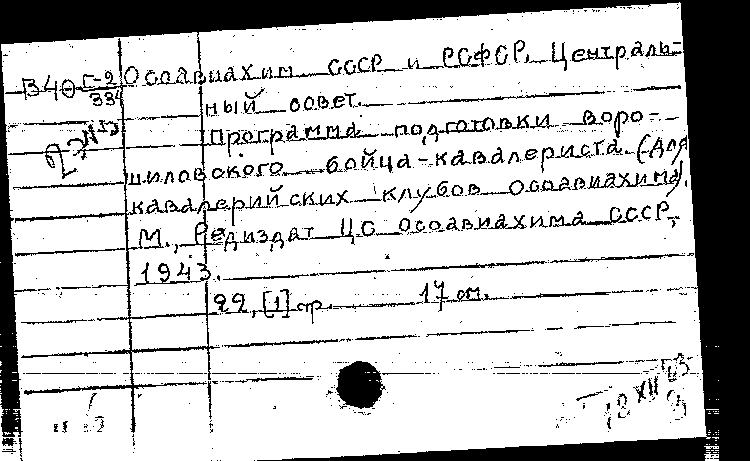 Осоавиахим СССР и РСФСР. Централь-
ный совет.
Программа подготовки воро-
шиловского бойца-кавалериста. (Для
кавалерийских клубов Осоавиахима).
М., Редиздат ЦС Осоавиахима СССР,
1943.
22, [1] стр. 17 см.